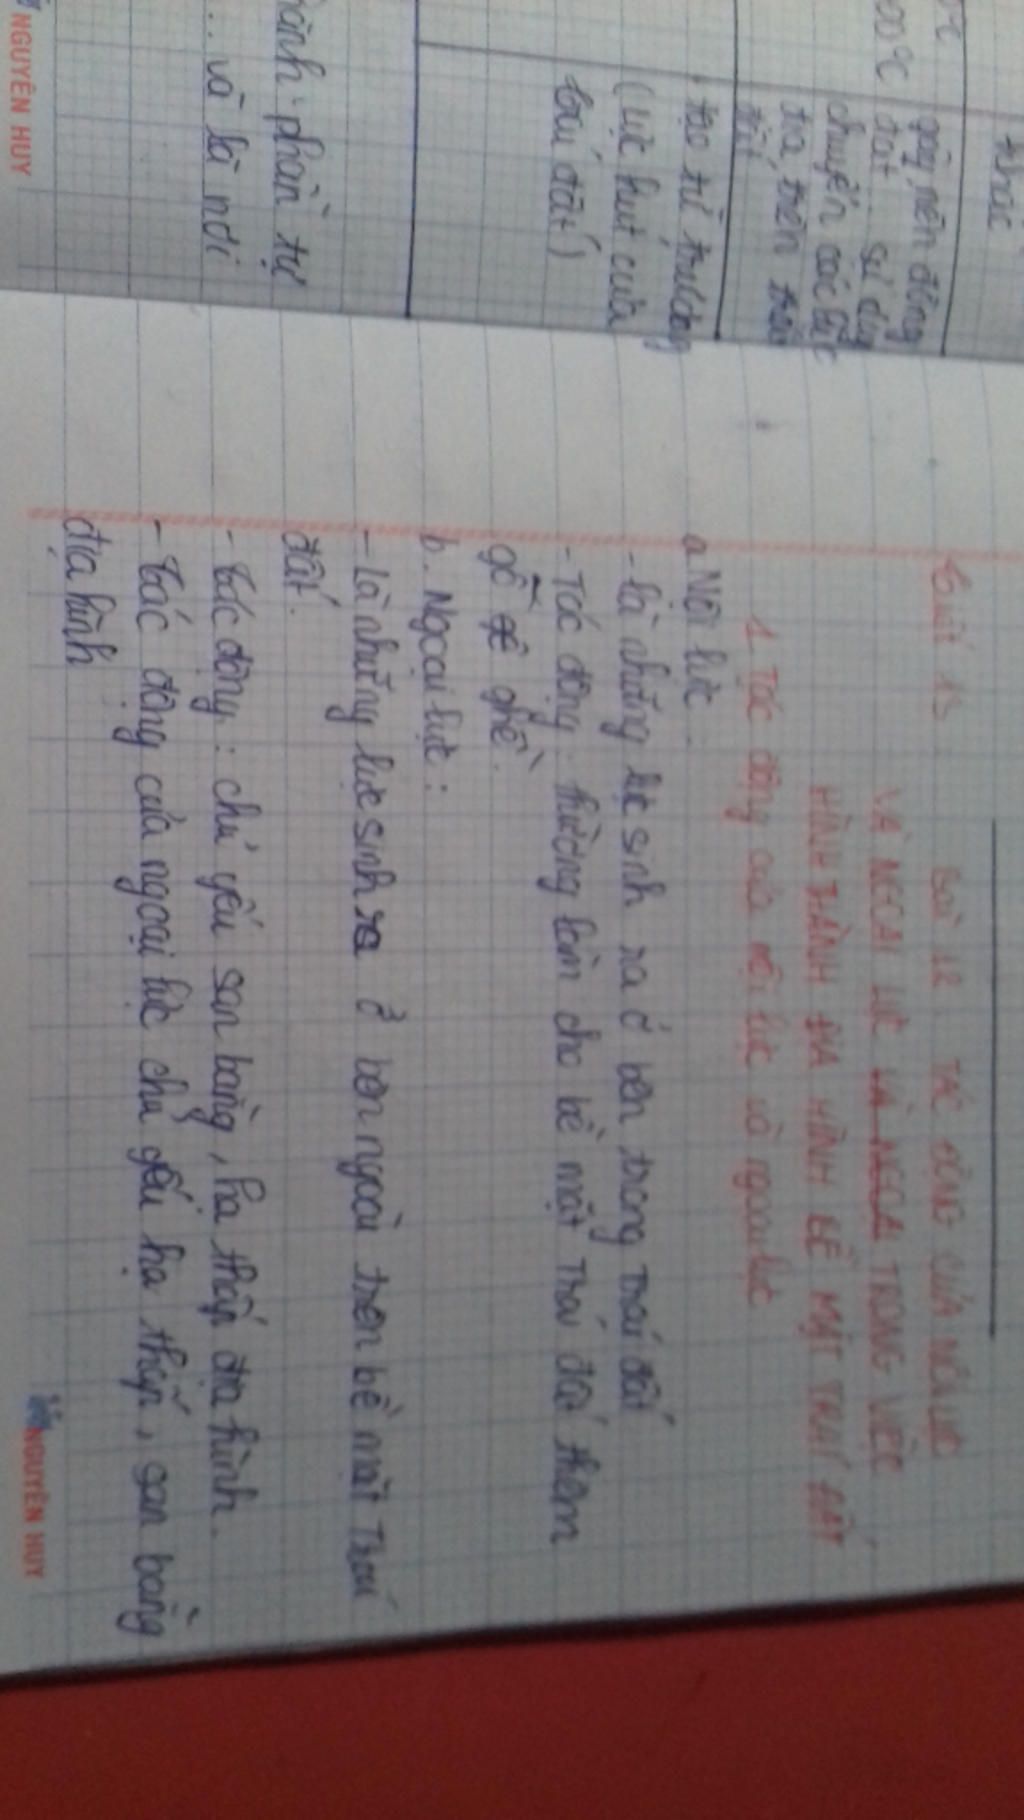 khác
0°C
gây nên động
00°C đất sự dịch
chuyển các lục
địa trên trái
đất
tạo từ trường
(lực hút của
trái đất)
hành phần tự
... và là nơi
NGUYÊN HUY
Tiết 13
Bài 12. TÁC ĐỘNG CỦA NỘI LỰC
VÀ NGOẠI LỰC VÀ NGOẠI TRONG VIỆC
HÌNH THÀNH ĐỊA HÌNH BỀ MẶT TRÁI ĐẤT
1. Tác động của nội lực và ngoại lực
a. Nội lực.
- Là những lực sinh ra ở bên trong Trái đất
- Tác động: thường làm cho bề mặt Trái đất thêm
gồ ghề.
b. Ngoại lực:
- Là những lực sinh ra ở bên ngoài trên bề mặt Trái
đất.
- Tác động: chủ yếu san bằng, hạ thấp địa hình.
- Tác động của ngoại lực chủ yếu hạ thấp, san bằng
địa hình
NGUYÊN HUY